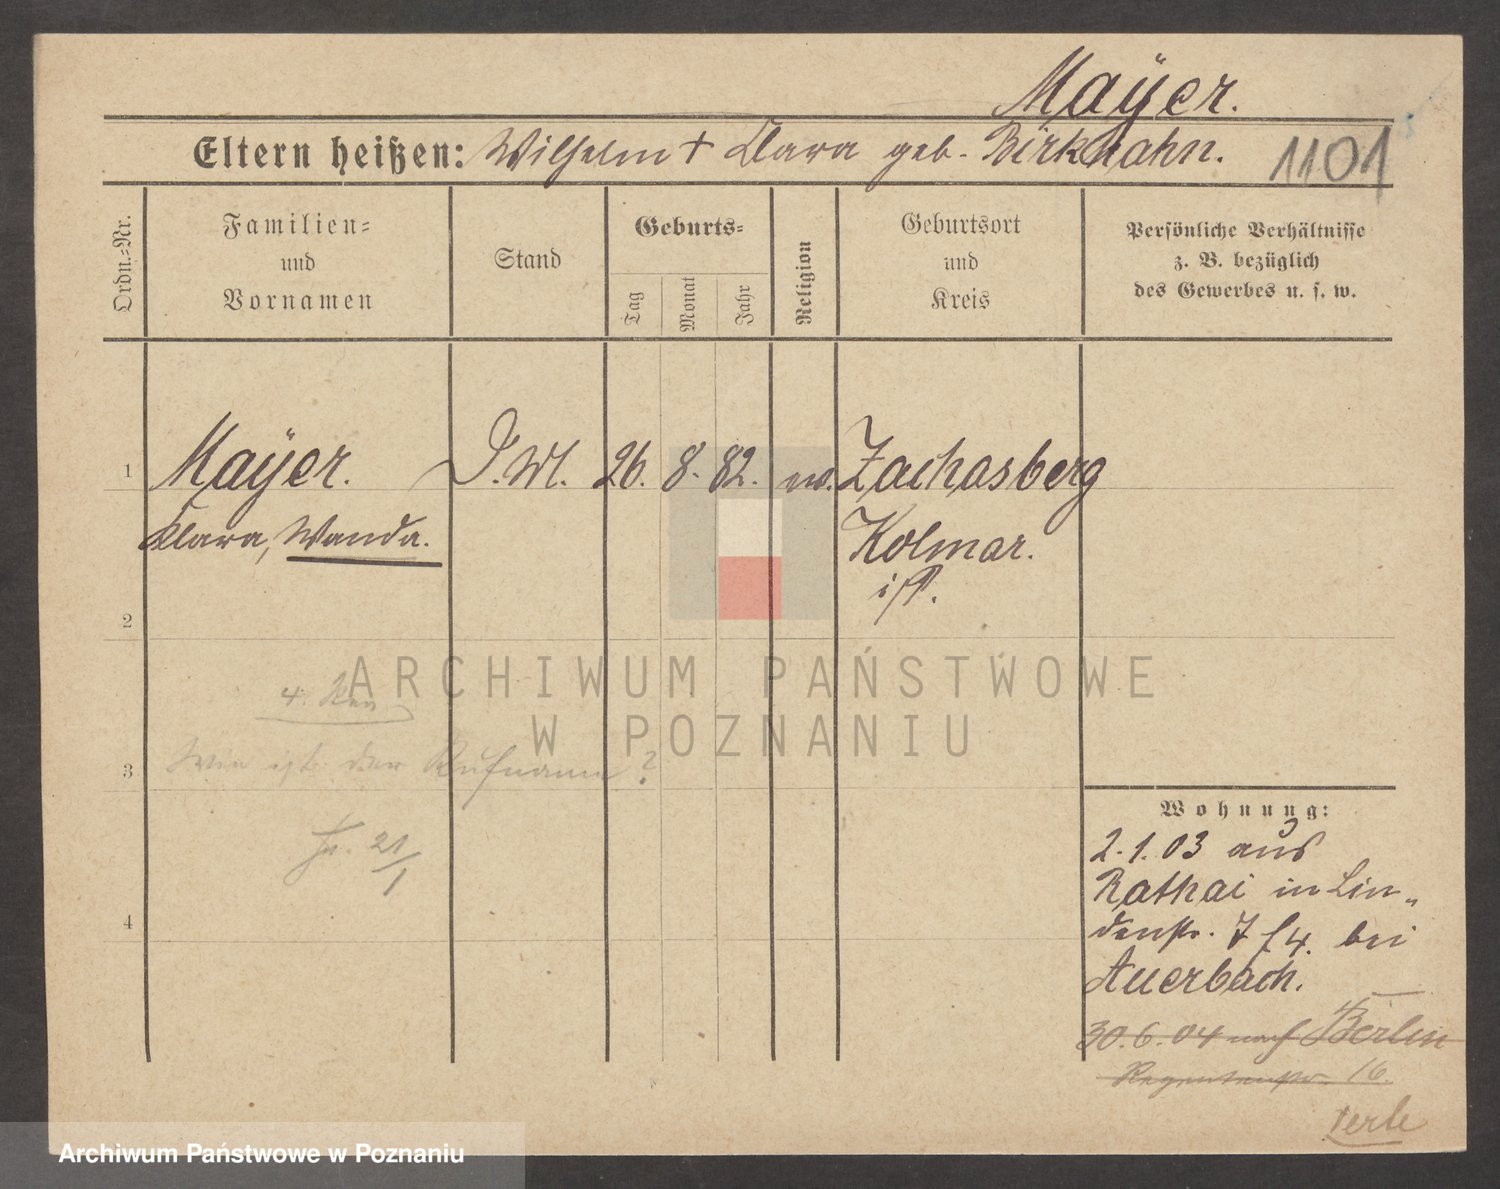 Maÿer.
Eltern heißen: Wilhelm + Clara geb. Birkhahn. 1101
Ordn.=Nr.
Familien=
und
Vornamen
Stand
Geburts=
Tag
Monat
Jahr
Religion
Geburtsort
und
Kreis
Persönliche Verhältnisse
z. B. bezüglich
des Gewerbes u. s. w.
1 Maÿer. 26. 8. 82. ev. Zachasberg
Clara, Wanda. Kolmar.
i/P.
2
3 ist der Rufname?
21/1
4
Wohnung:
2.1.03 aus
Rathai in Lin-
denstr. 7 f4. bei
Auerbach.
30.6.04 nach Berlin
16.
ARCHIWUM PAŃSTWOWE
W POZNANIU
Archiwum Państwowe w Poznaniu